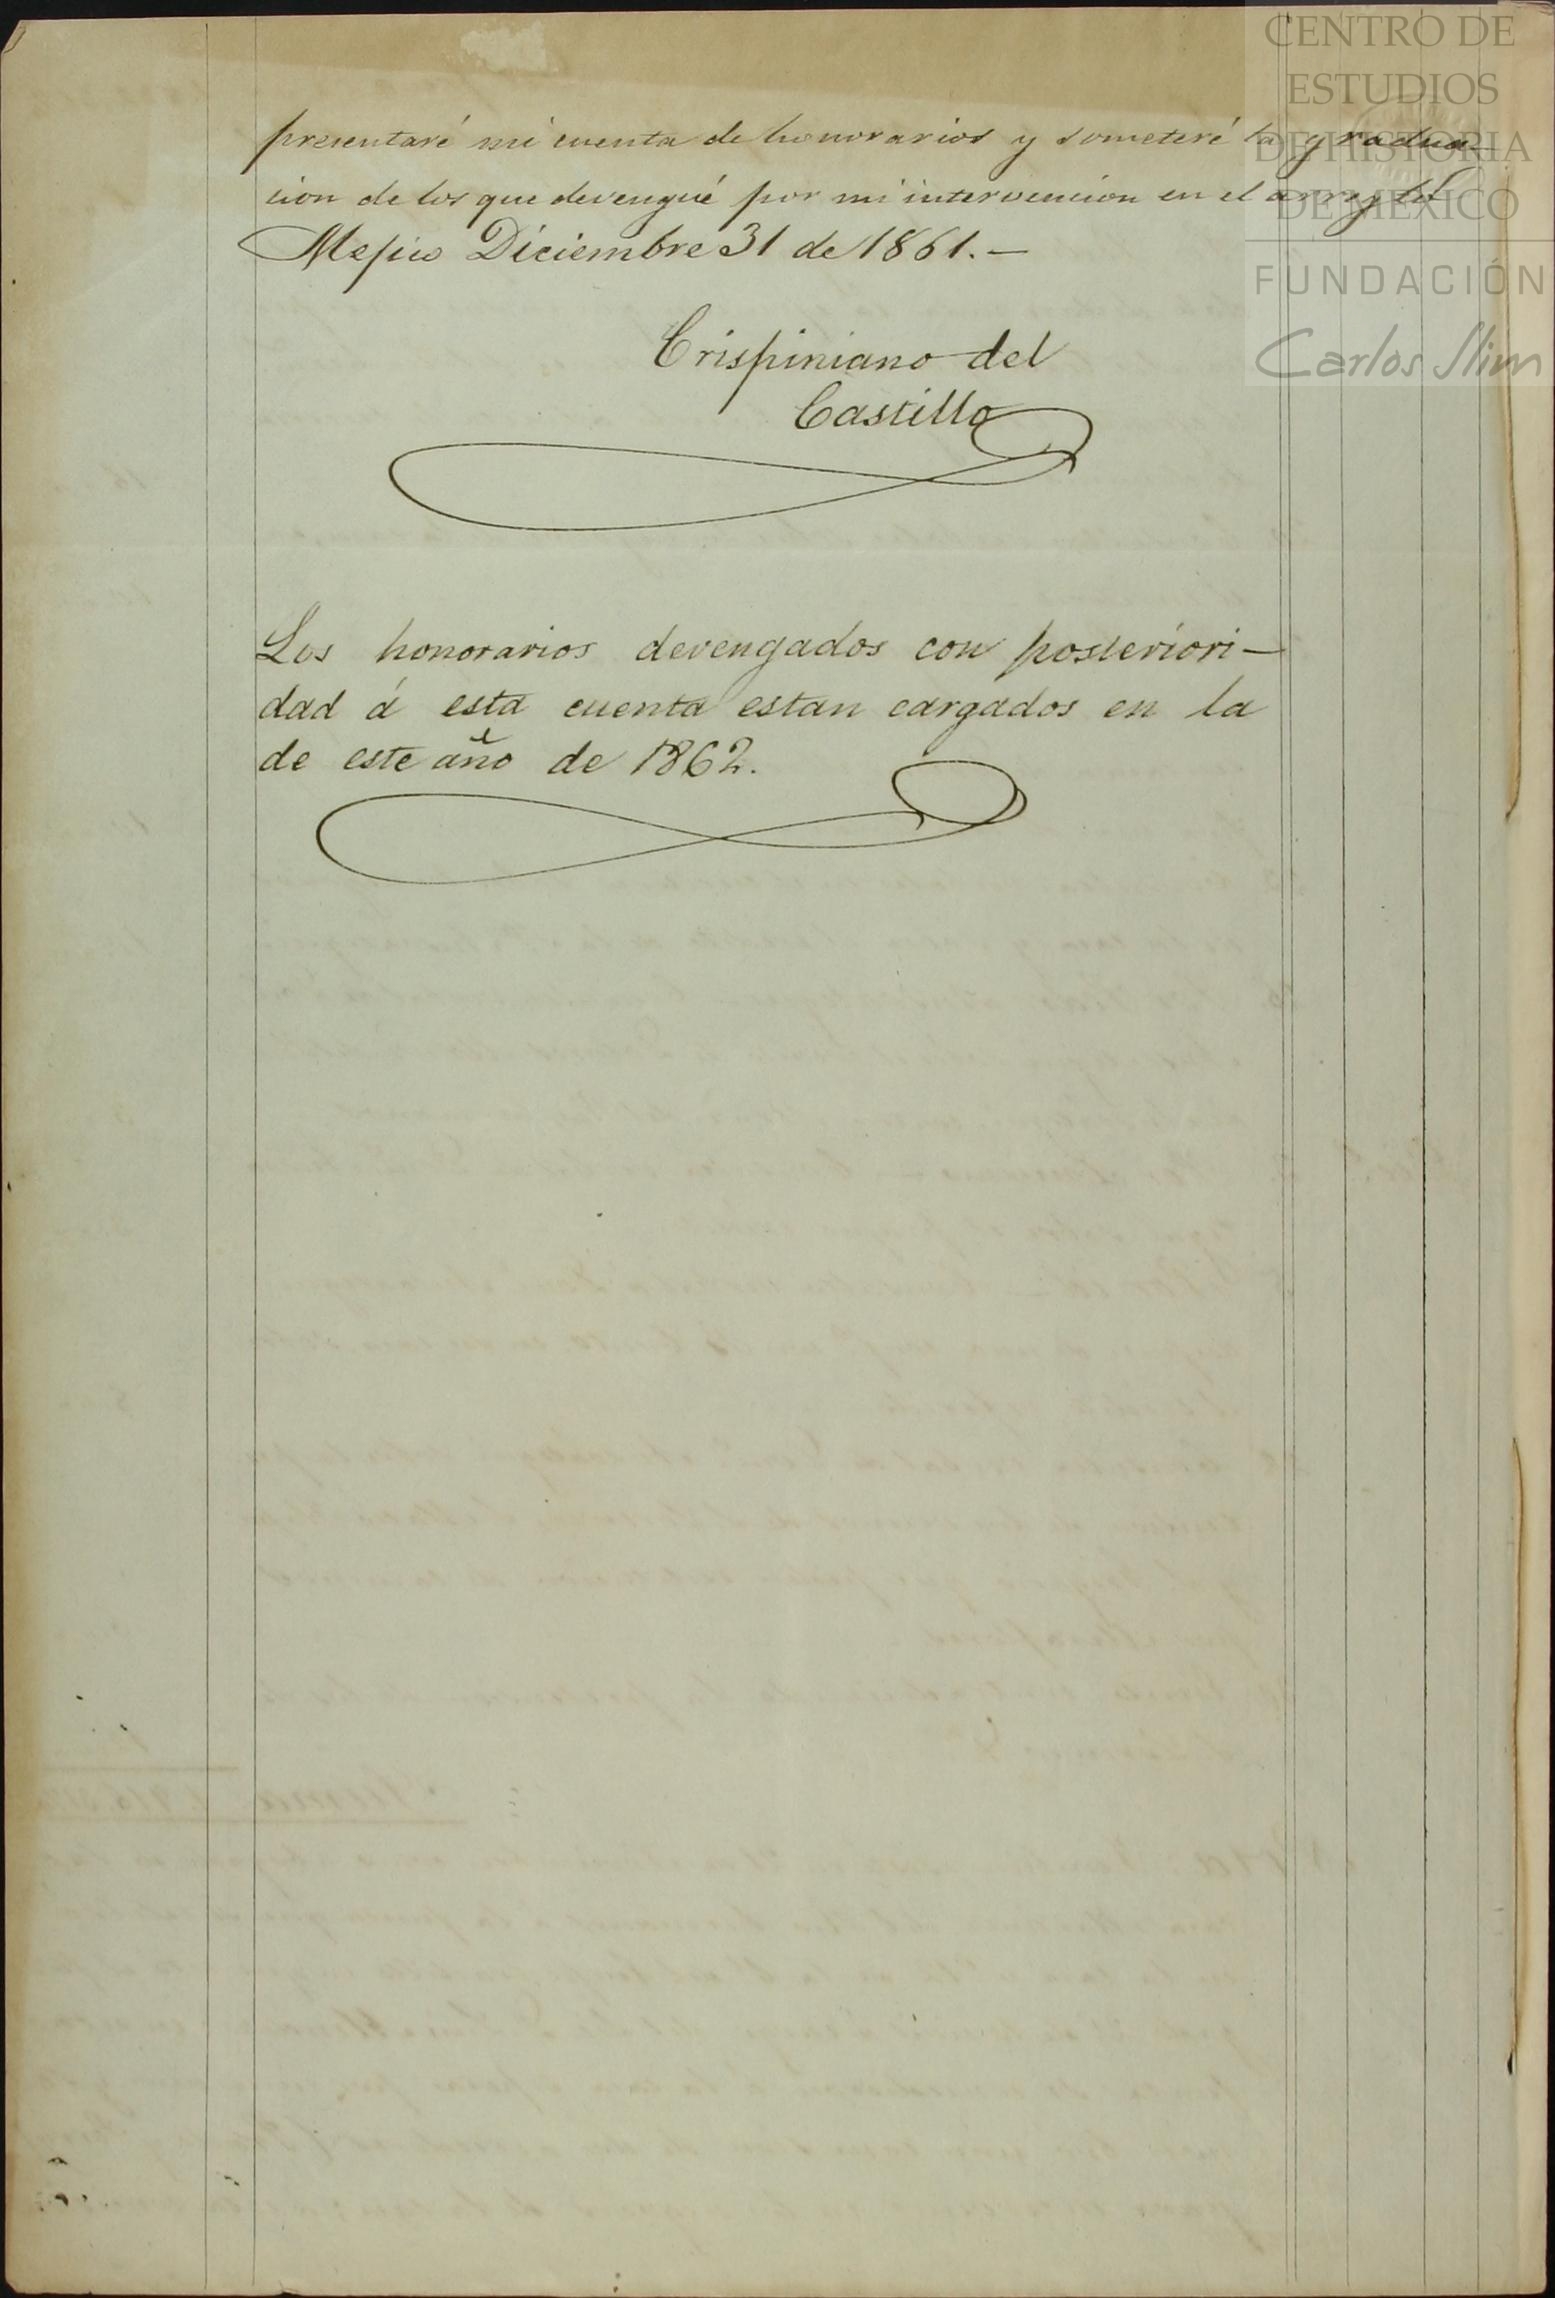 CENTRO DE
ESTUDIOS
DE HISTORIA
DE MÉXICO
FUNDACIÓN
Carlos Slim
presentaré mi cuenta de honorarios y someteré la gradua-
cion de los que devengué por mi intervencion en el arreglo
Mejico Diciembre 31 de 1861.—
Crispiniano del
Castillo
Los honorarios devengados con posteriori-
dad á esta cuenta estan cargados en la
de este año de 1862.